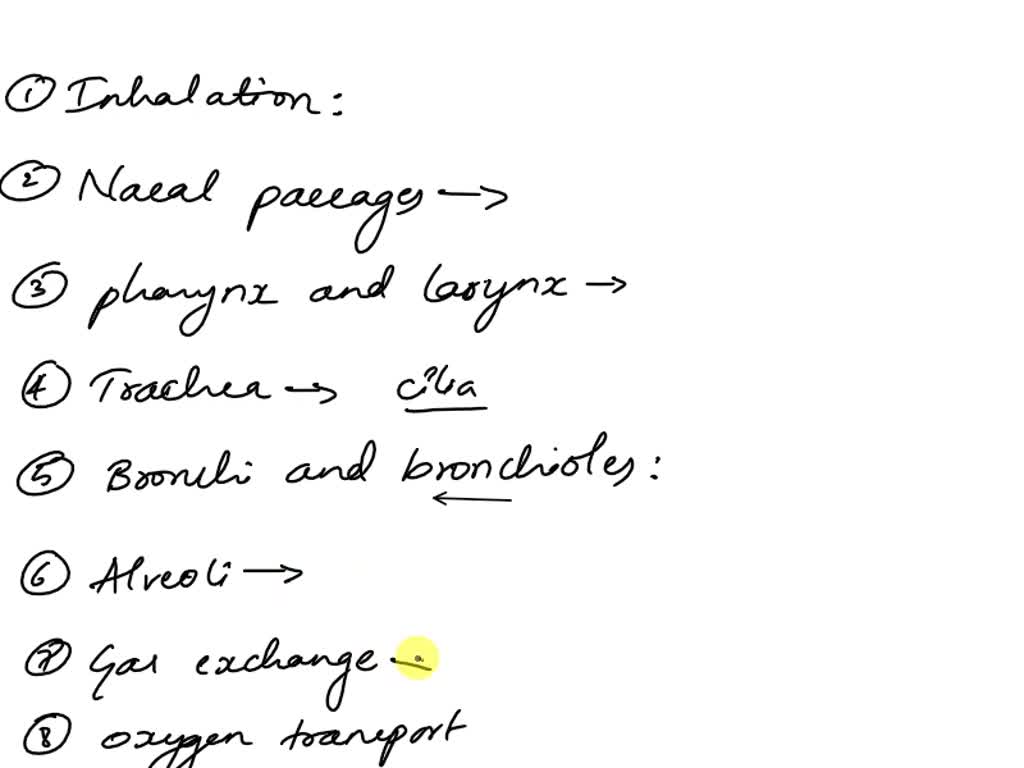 ① Inhalation:
② Nasal passages →
③ pharynx and larynx →
④ Trachea → cilia
⑤ Bronchi and bronchioles:
⑥ Alveoli →
⑦ Gas exchange -
⑧ oxygen transport